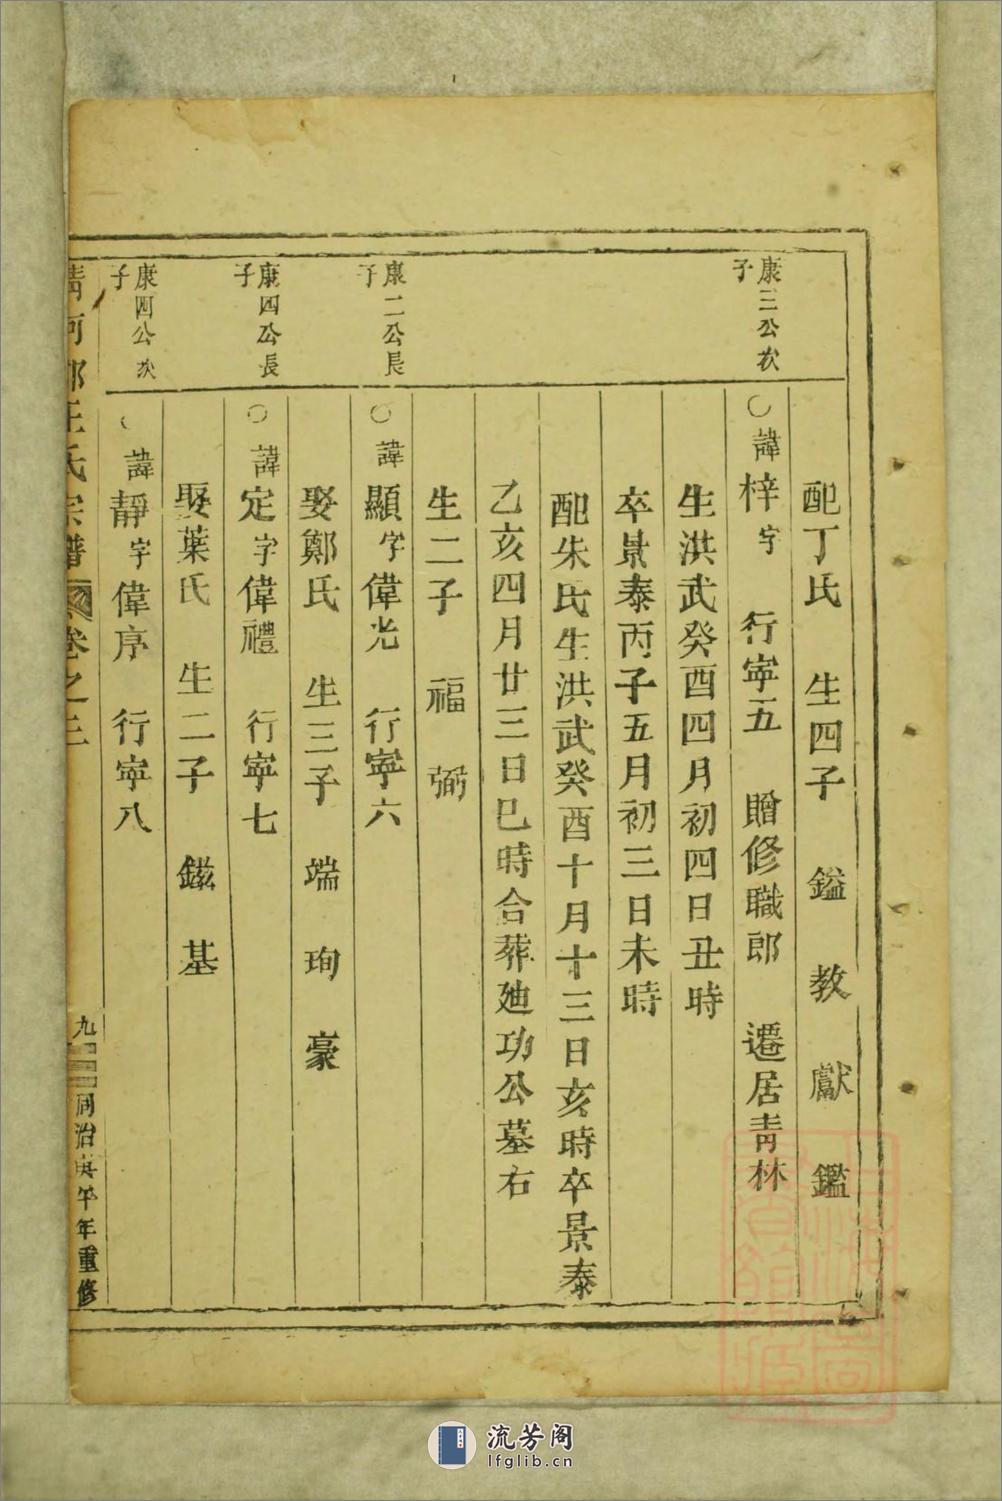 配丁氏　生四子　鎰　教　獻　鑑
康三公次子
○諱梓字　行寜五　贈修職郎　遷居靑林
生洪武癸酉四月初四日丑時
卒景泰丙子五月初三日未時
配朱氏生洪武癸酉十月十三日亥時卒景泰
乙亥四月廿三日巳時合葬廸功公墓右
生二子　福　弼
康二公長子
○諱顯字偉光　行寜六
娶鄭氏　生三子　端　珣　豪
康四公長子
○諱定字偉禮　行寜七
娶葉氏　生二子　鎡　基
康四公次子
○諱靜字偉序　行寜八
淸河郡王氏宗譜　卷之三　九　同治庚午年重修
流芳阁
lfglib.cn